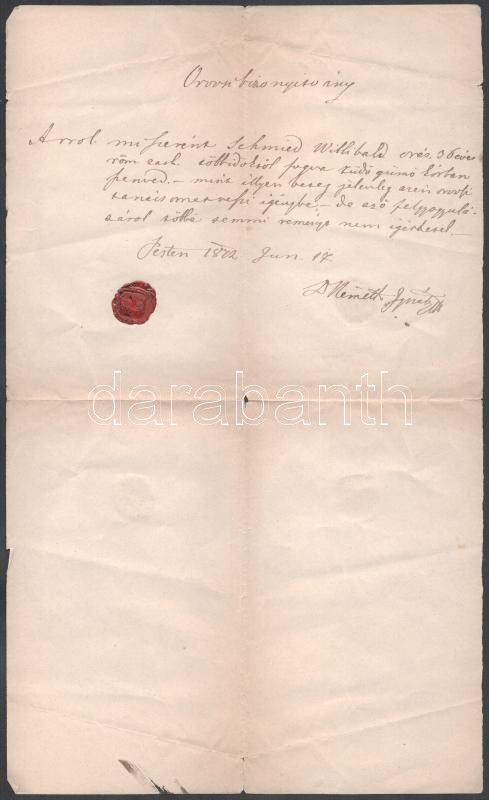 Orvosi bizonyitvány
Arrol miszerént Schmied Willibald órás, 36 éves
róm cath. több idotöl fogva tüdö gümö kórban
szenved. – mint illyen beteg jelenleg azén orvosi
tanácsomat veszi igénybe – de azó felgyogyulá-
sárol többé semmi reményt nem igérhetek. –
Pesten 1872 Jun. 17.
Dr Németh Ignátz
darabanth